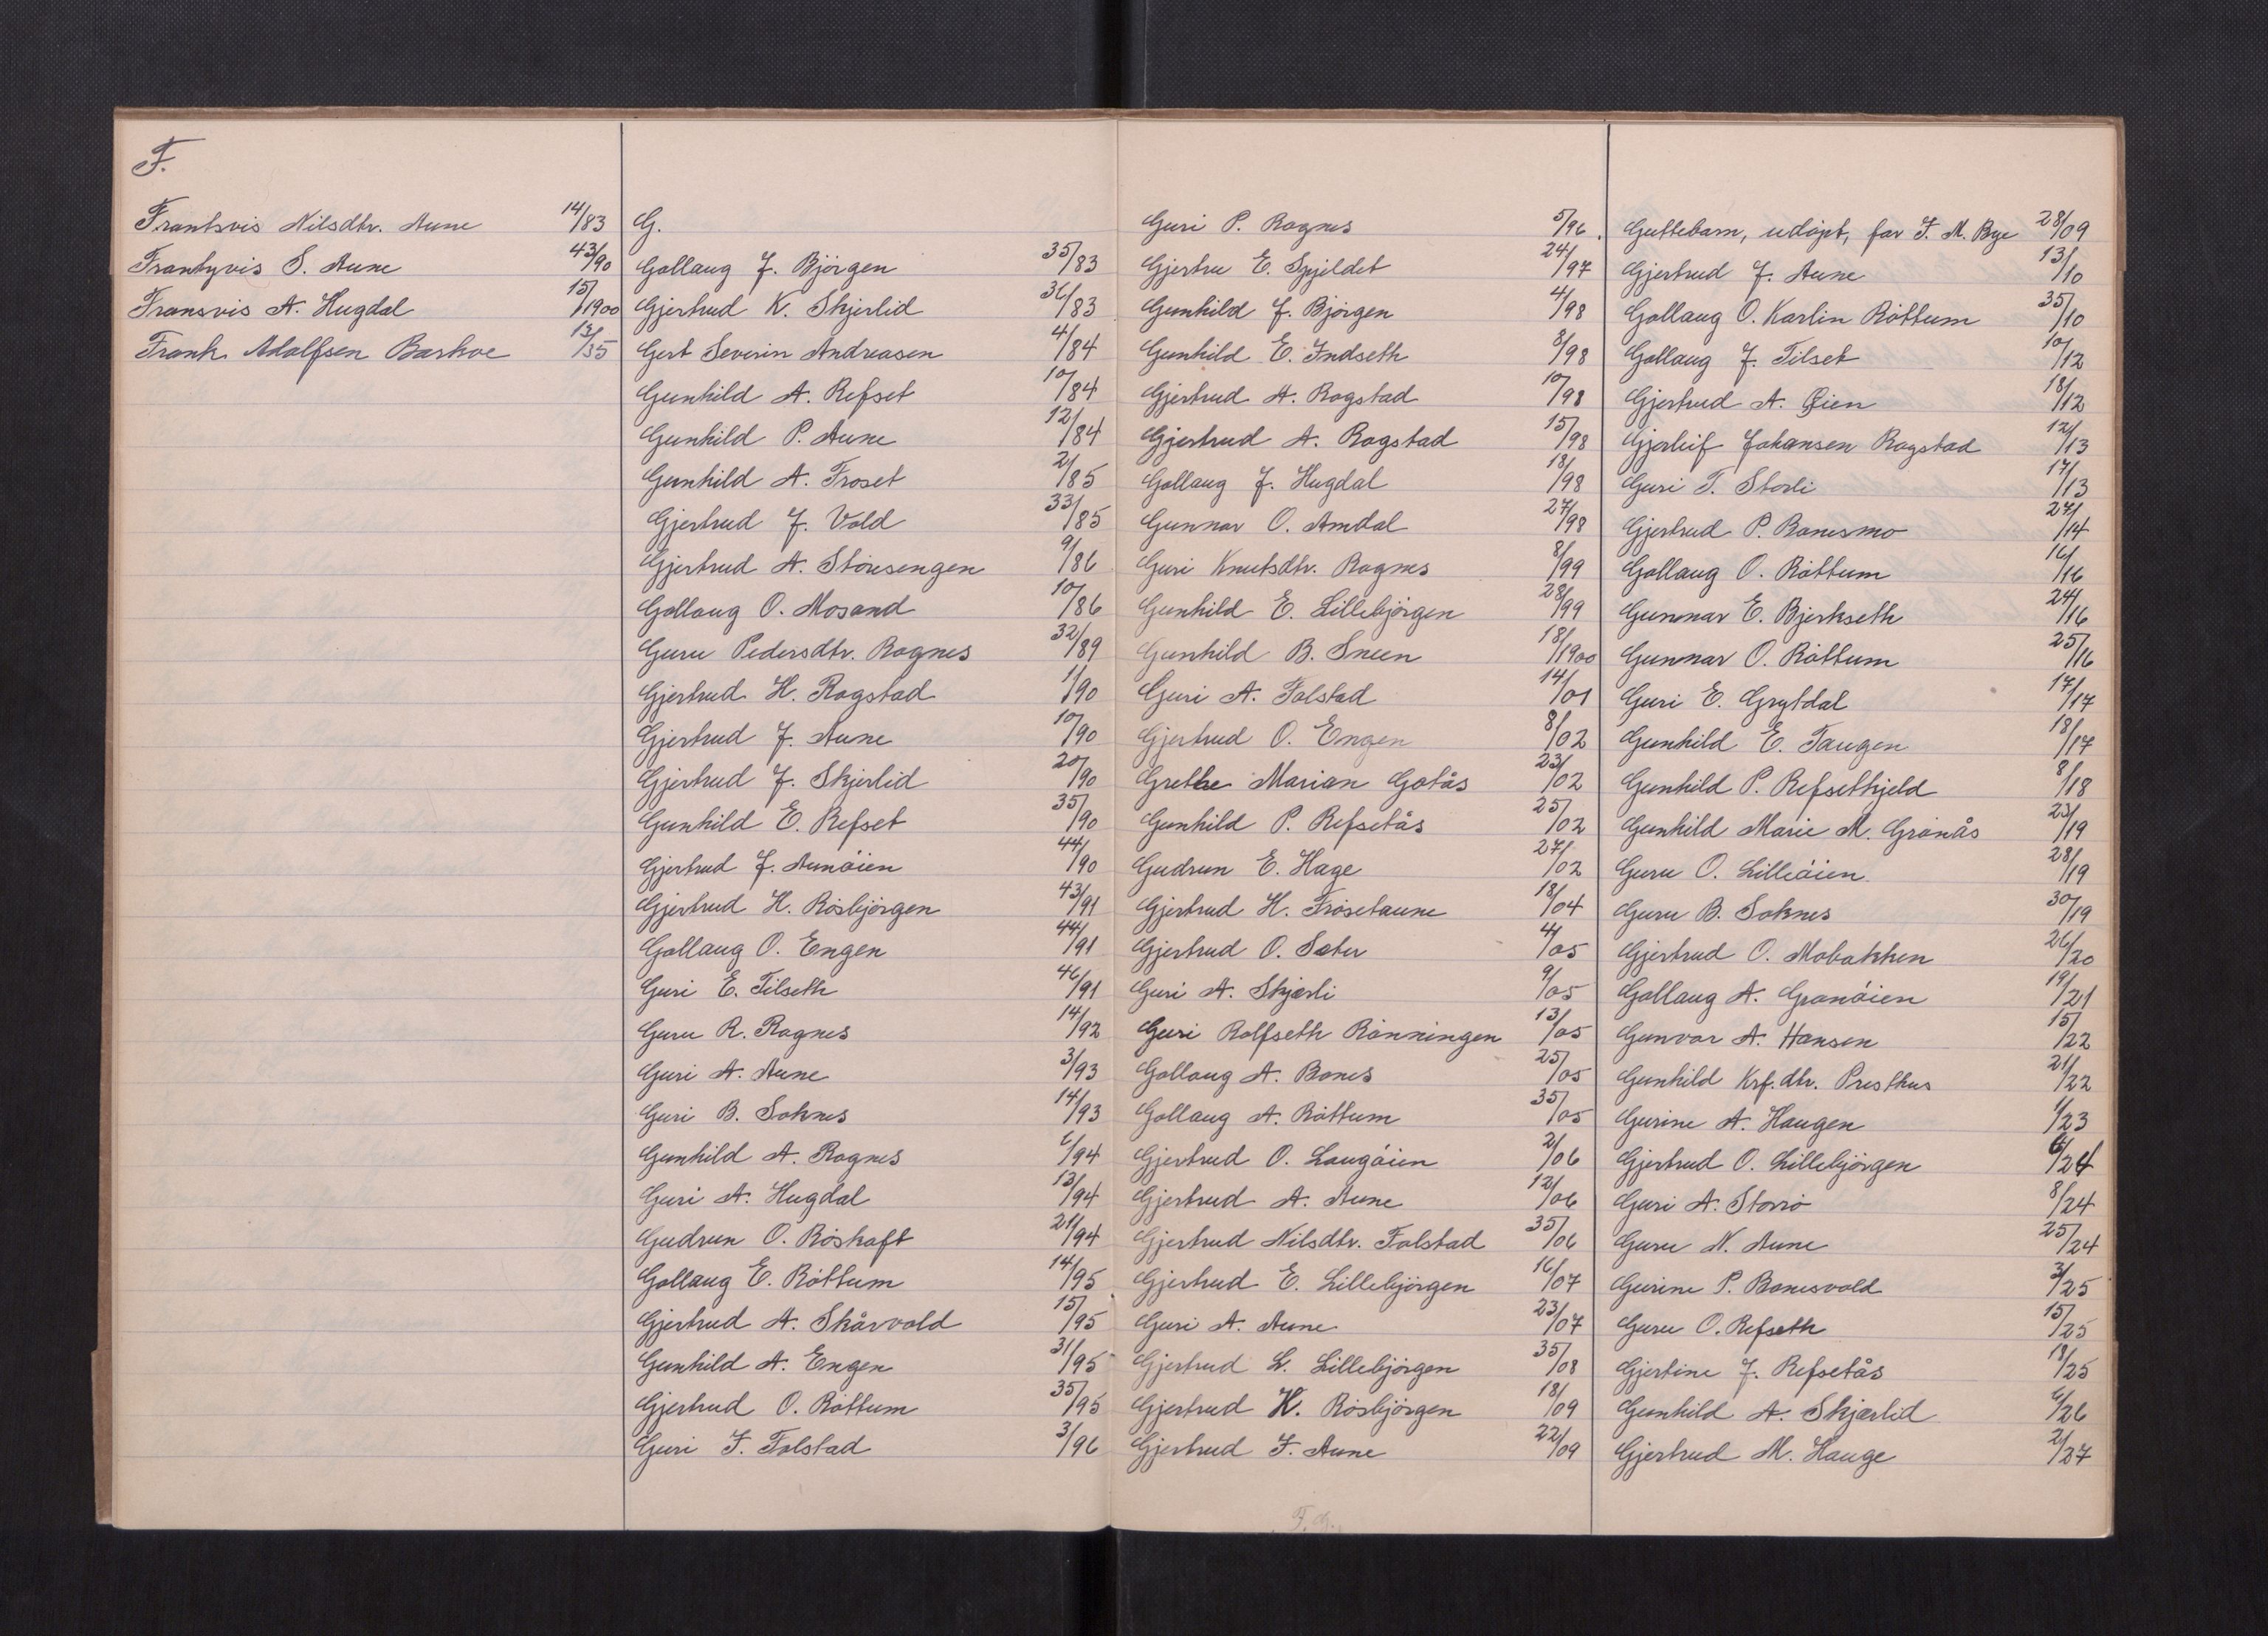 F.
Frantsvis Nilsdtr. Aune 14/83
Frantzvis S. Aune 43/90
Fransvis A. Hugdal 15/1900
Frank Adolfsen Barkve 13/35
G.
Gollaug J. Björgen 35/83
Gjertrud K. Skjerlid 36/83
Gert Severin Andreasen 4/84
Gunhild A. Refset 10/84
Gunhild P. Aune 12/84
Gunhild A. Froset 2/85
Gjertrud J. Vold 33/85
Gjertrud A. Störisengen 9/86
Gollaug O. Mosand 10/86
Guru Pedersdtr. Rognes 32/89
Gjertrud H. Rogstad 1/90
Gjertrud J. Aune 10/90
Gjertrud J. Skjerlid 20/90
Gunhild E. Refset 35/90
Gjertrud J. Aunöien 44/90
Gjertrud H. Rösbjörgen 43/91
Gollaug O. Engen 44/91
Guri E. Tilseth 46/91
Guru R. Rognes 14/92
Guri A. Aune 3/93
Guri B. Soknes 14/93
Gunhild A. Rognes 6/94
Guri A. Hugdal 13/94
Gudrun O. Röskaft 21/94
Gollaug E. Röttum 14/95
Gjertrud A. Skårvold 15/95
Gunhild A. Engen 31/95
Gjertrud O. Röttum 35/95
Guri J. Folstad 3/96
Guri P. Rognes 5/96
Gjertru E. Spjeldet 24/97
Gunhild J. Björgen 4/98
Gunhild E. Indseth 8/98
Gjertrud A. Rogstad 10/98
Gjertrud A. Rogstad 15/98
Gollaug J. Hugdal 18/98
Gunnar O. Amdal 27/98
Guri Knutsdtr. Rognes 8/99
Gunhild E. Lillebjörgen 28/99
Gunhild B. Sneen 18/1900
Guri A. Folstad 14/01
Gjertrud O. Engen 8/02
Grethe Marian Gotås 23/02
Gunhild P. Refsetås 25/02
Gudrun E. Hage 27/02
Gjertrud H. Frösetaune 18/04
Gjertrud O. Sæter 4/05
Guri A. Skjærli 9/05
Guri Rolfseth Rönningen 13/05
Gollaug A. Bones 25/05
Gollaug A. Röttum 35/05
Gjertrud O. Laugöien 2/06
Gjertrud A. Aune 12/06
Gjertrud Nilsdtr. Folstad 35/06
Gjertrud E. Lillebjörgen 16/07
Guri A. Aune 23/07
Gjertrud L. Lillebjörgen 35/08
Gjertrud H. Rösbjörgen 18/09
Gjertrud J. Aune 22/09
F. G.
Guttebarn, udöpt, far J. M. Bye 28/09
Gjertrud J. Aune 13/10
Gollaug O. Karlin Röttum 35/10
Gollaug J. Tilset 10/12
Gjertrud A. Öien 18/12
Gjerleif Johansen Rogstad 12/13
Guri T. Storli 17/13
Gjertrud P. Bonesmo 27/14
Gollaug O. Röttum 16/16
Gunnar E. Bjerkseth 24/16
Gunnar O. Röttum 25/16
Guri E. Grytdal 17/17
Gunhild E. Taugen 18/17
Gunhild P. Refsethjeld 8/18
Gunhild Marie M. Granås 23/19
Guru O. Lilleöien 28/19
Guru B. Soknes 30/19
Gjertrud O. Mobakken 26/20
Gollaug A. Granöien 19/21
Gunvor A. Hansen 15/22
Gunhild Krf. dtr. Presthus 21/22
Gurine A. Haugen 1/23
Gjertrud O. Lillebjörgen 6/24
Guri A. Storrö 8/24
Guru N. Aune 25/24
Gurine P. Bonesvold 3/25
Guru O. Refseth 15/25
Gjertine J. Refsetås 18/25
Gunhild A. Skjærlid 6/26
Gjertrud M. Hauge 2/27